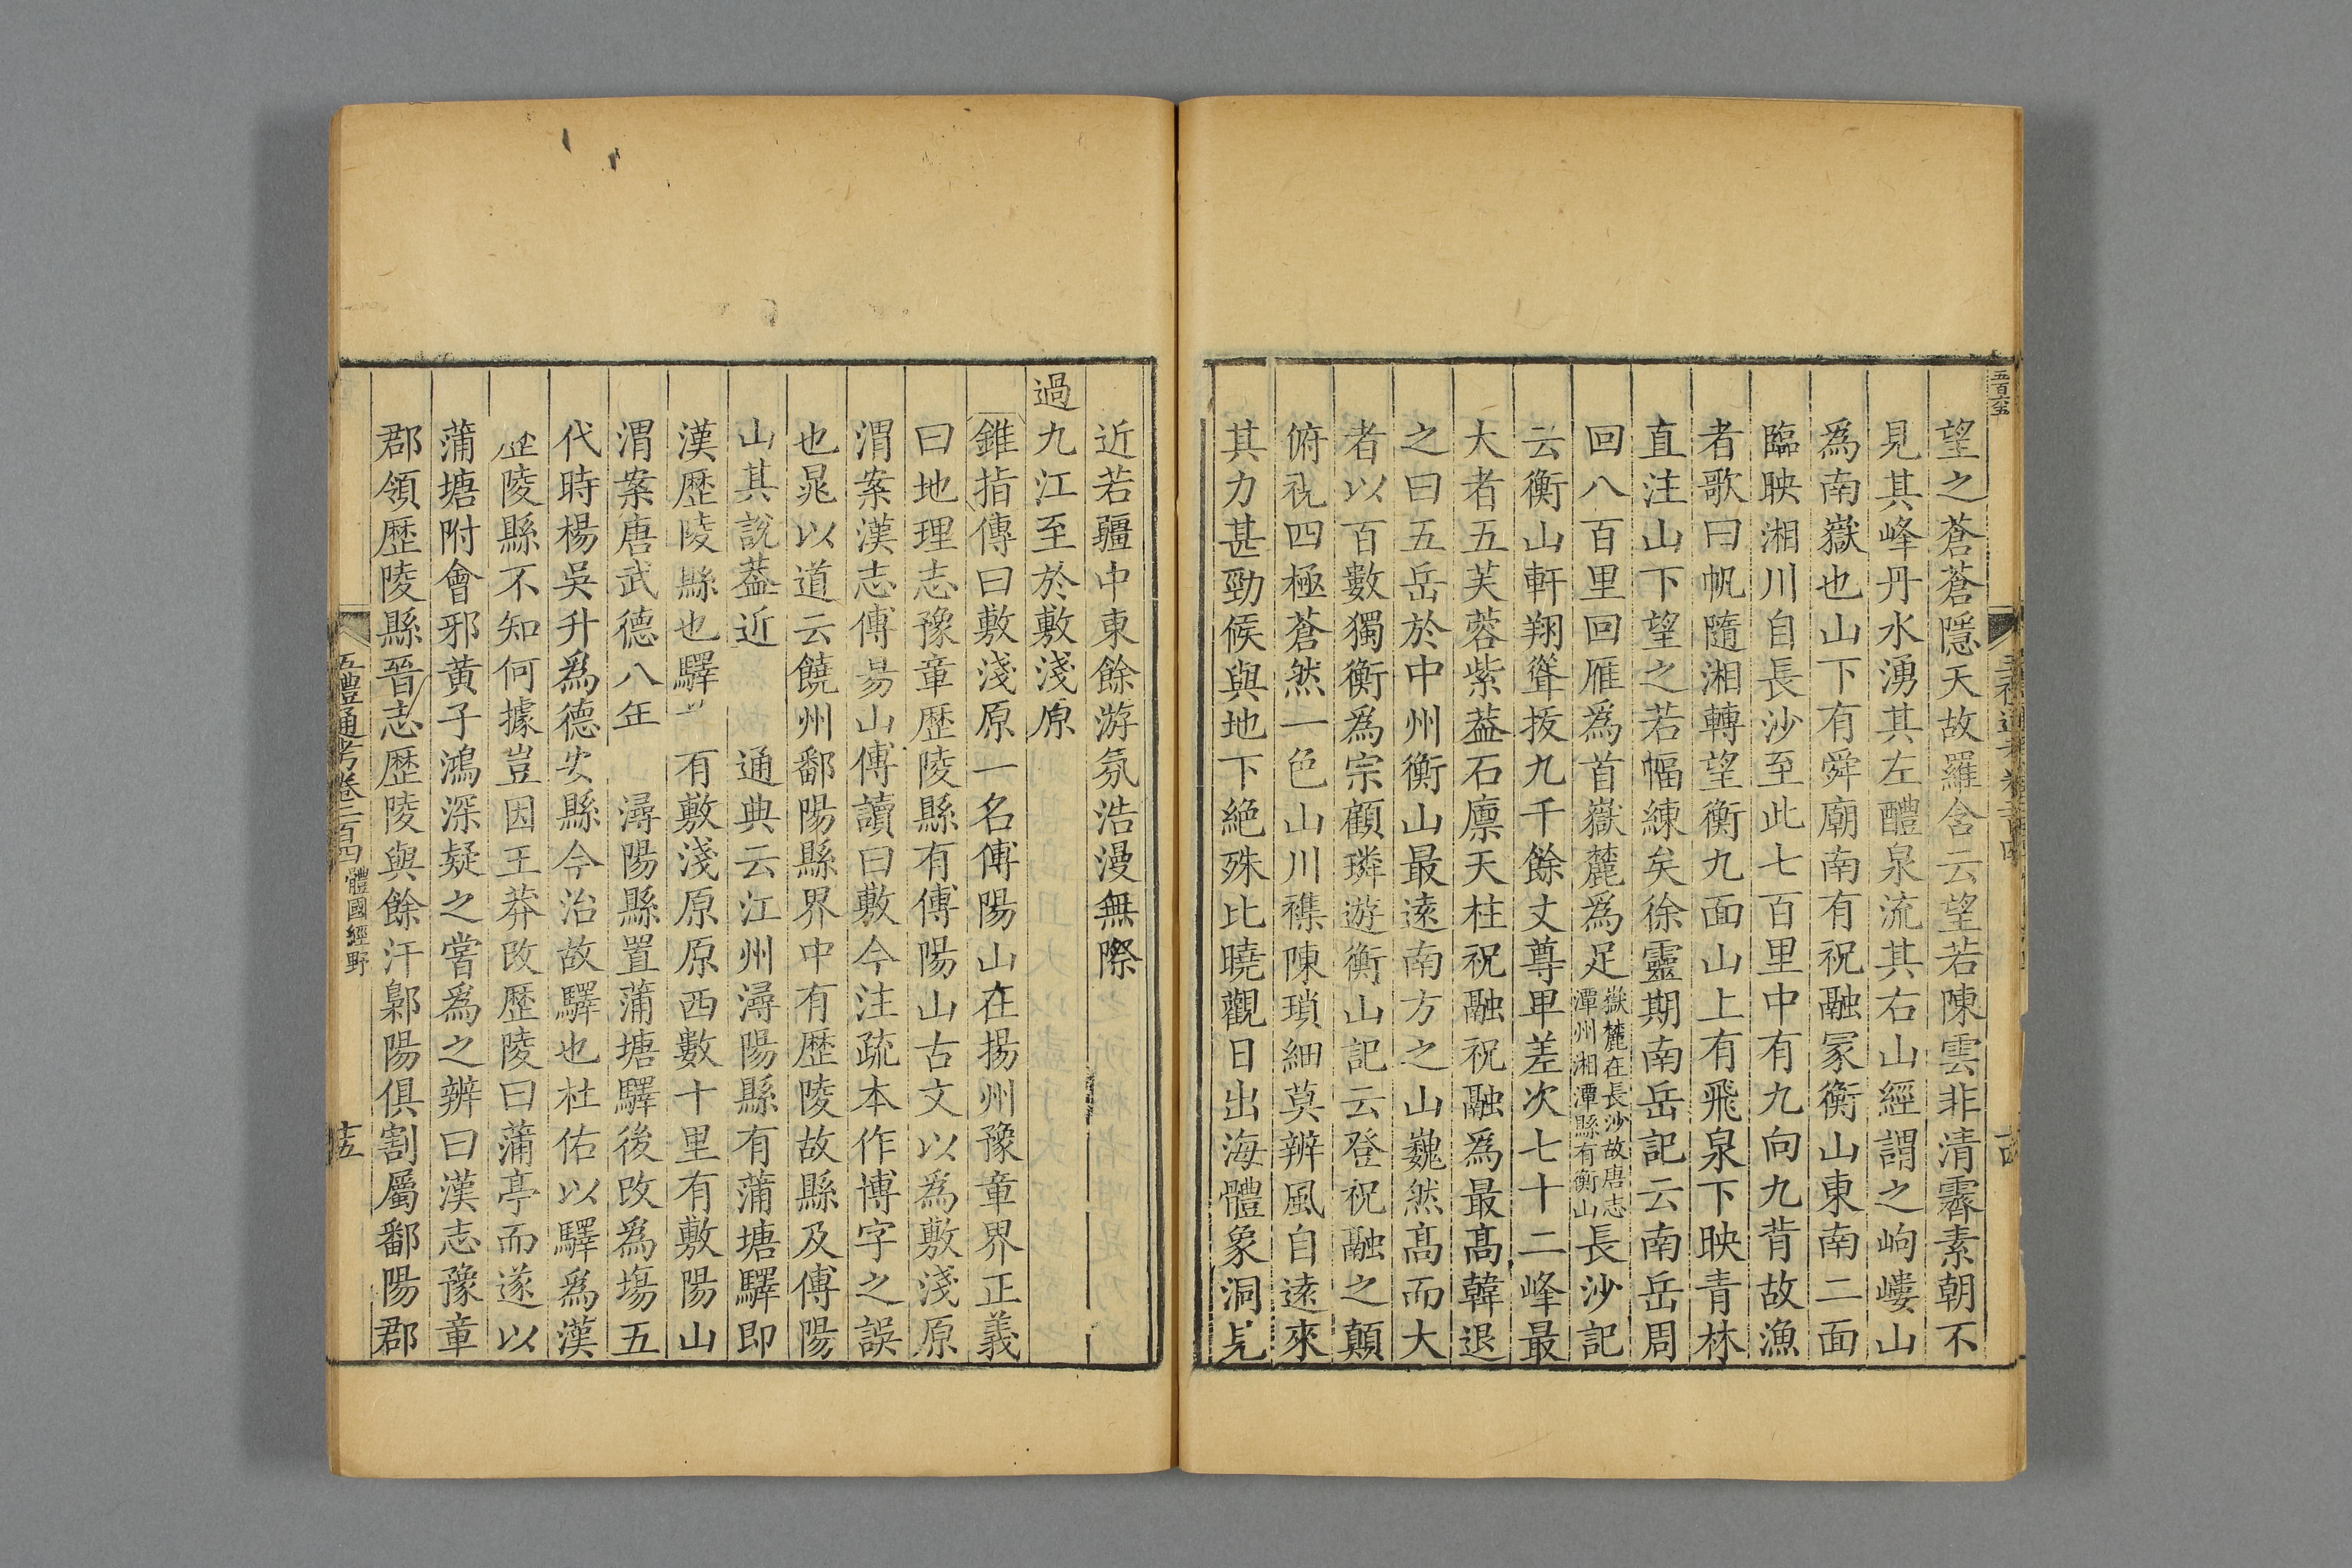 五百六五
望之蒼蒼隱天故羅含云望若陳雲非清霽素朝不
見其峰丹水湧其左醴泉流其右山經謂之岣嶁山
爲南嶽也山下有舜廟南有祝融冢衡山東南二面
臨映湘川自長沙至此七百里中有九向九背故漁
者歌曰帆隨湘轉望衡九面山上有飛泉下映青林
直注山下望之若幅練矣徐靈期南岳記云南岳周
回八百里回雁爲首嶽麓爲足嶽麓在長沙故唐志潭州湘潭縣有衡山長沙記
云衡山軒翔聳拔九千餘丈尊卑差次七十二峰最
大者五芙蓉紫葢石廪天柱祝融祝融爲最高韓退
之曰五岳於中州衡山最逺南方之山巍然高而大
者以百數獨衡爲宗顧璘遊衡山記云登祝融之顛
俯視四極蒼然一色山川襍陳瑣細莫辨風自逺來
其力甚勁候與地下絶殊比曉觀日出海體象洞見
近若疆中東餘游氛浩漫無際
過九江至於敷淺原
錐指傳曰敷淺原一名傅陽山在揚州豫章界正義
曰地理志豫章歷陵縣有傅陽山古文以爲敷淺原
渭案漢志傅昜山傅讀曰敷今注疏本作博字之誤
也晁以道云饒州鄱陽縣界中有歷陵故縣及傅陽
山其說葢近 通典云江州潯陽縣有蒲塘驛即
漢歷陵縣也驛 有敷淺原原西數十里有敷陽山
渭案唐武德八年 潯陽縣置蒲塘驛後改爲場五
代時楊吳升爲德安縣今治故驛也杜佑以驛爲漢
歷陵縣不知何據豈因王莽改歷陵曰蒲亭而遂以
蒲塘附會邪黃子鴻深疑之嘗爲之辨曰漢志豫章
郡領歷陵縣晉志歷陵與餘汗鄡陽俱割屬鄱陽郡
五禮通考卷二百四 體國經野 十五